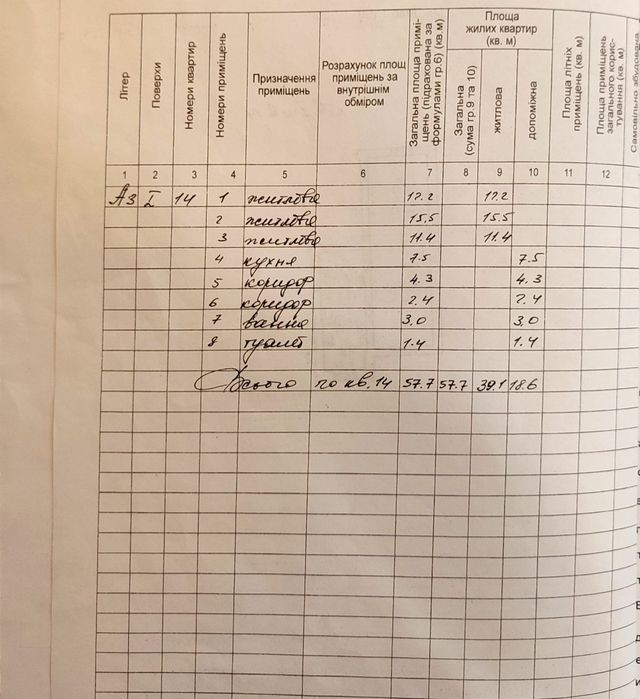 Літер
Поверхи
Номери квартир
Номери приміщень
Призначення
приміщень
Розрахунок площ
приміщень за
внутрішнім
обміром
Загальна площа примі-
щень (підрахована за
формулами гр.6) (кв.м)
Площа
жилих квартир
(кв. м)
Загальна
(сума гр.9 та 10)
житлова
допоміжна
Площа літніх
приміщень (кв. м)
Площа приміщень
загального корис-
тування (кв. м)
Самовільно збудована
1 2 3 4 5 6 7 8 9 10 11 12
Аз I 14 1 житлова 12.2 12.2
2 житлова 15,5 15.5
3 житлова 11.4 11.4
4 кухня 7.5 7.5
5 коридор 4.3 4.3
6 коридор 2.4 2.4
7 ванна 3,0 3,0
8 туалет 1.4 1.4
Всього по кв. 14 57.7 57.7 39.1 18.6